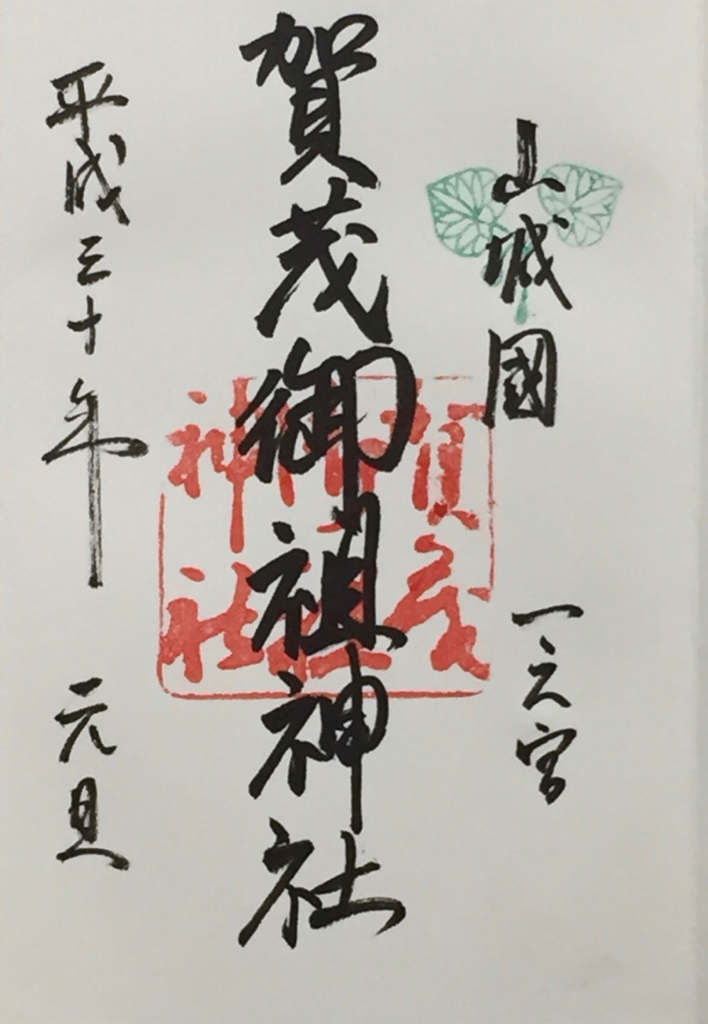 山城國 一之宮
賀茂御祖神社
平成三十年 元旦
賀茂御祖神社